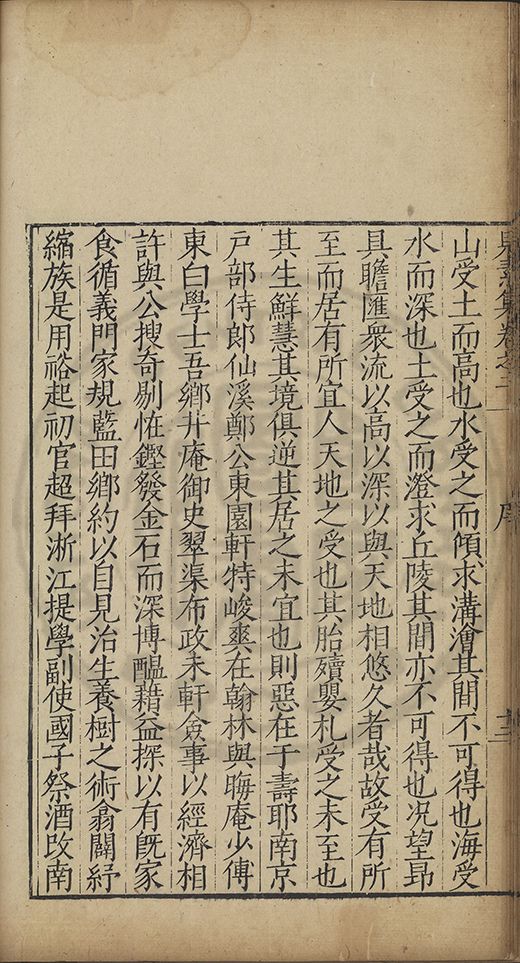 山受土而高也水受之而傾求溝澮其間不可得也海受
水而深也土受之而澄求丘陵其間亦不可得也况望昂
具瞻匯衆流以高以深以與天地相悠久者哉故受有所
至而居有所宜人天地之受也其胎殰嬰札受之未至也
其生鮮慧其境俱逆其居之未宜也則惡在于壽耶南京
戸部侍郎仙溪鄭公東園軒特峻爽在翰林與晦庵少傅
東白學士吾鄉廾庵御史翠渠布政未軒僉事以經濟相
許與公搜奇剔恠鏗發金石而深博醖藉益探以有旣家
食循義門家規藍田鄉約以自見治生養樹之術翕闢紓
縮族是用裕起初官超拜浙江提學副使國子祭酒改南